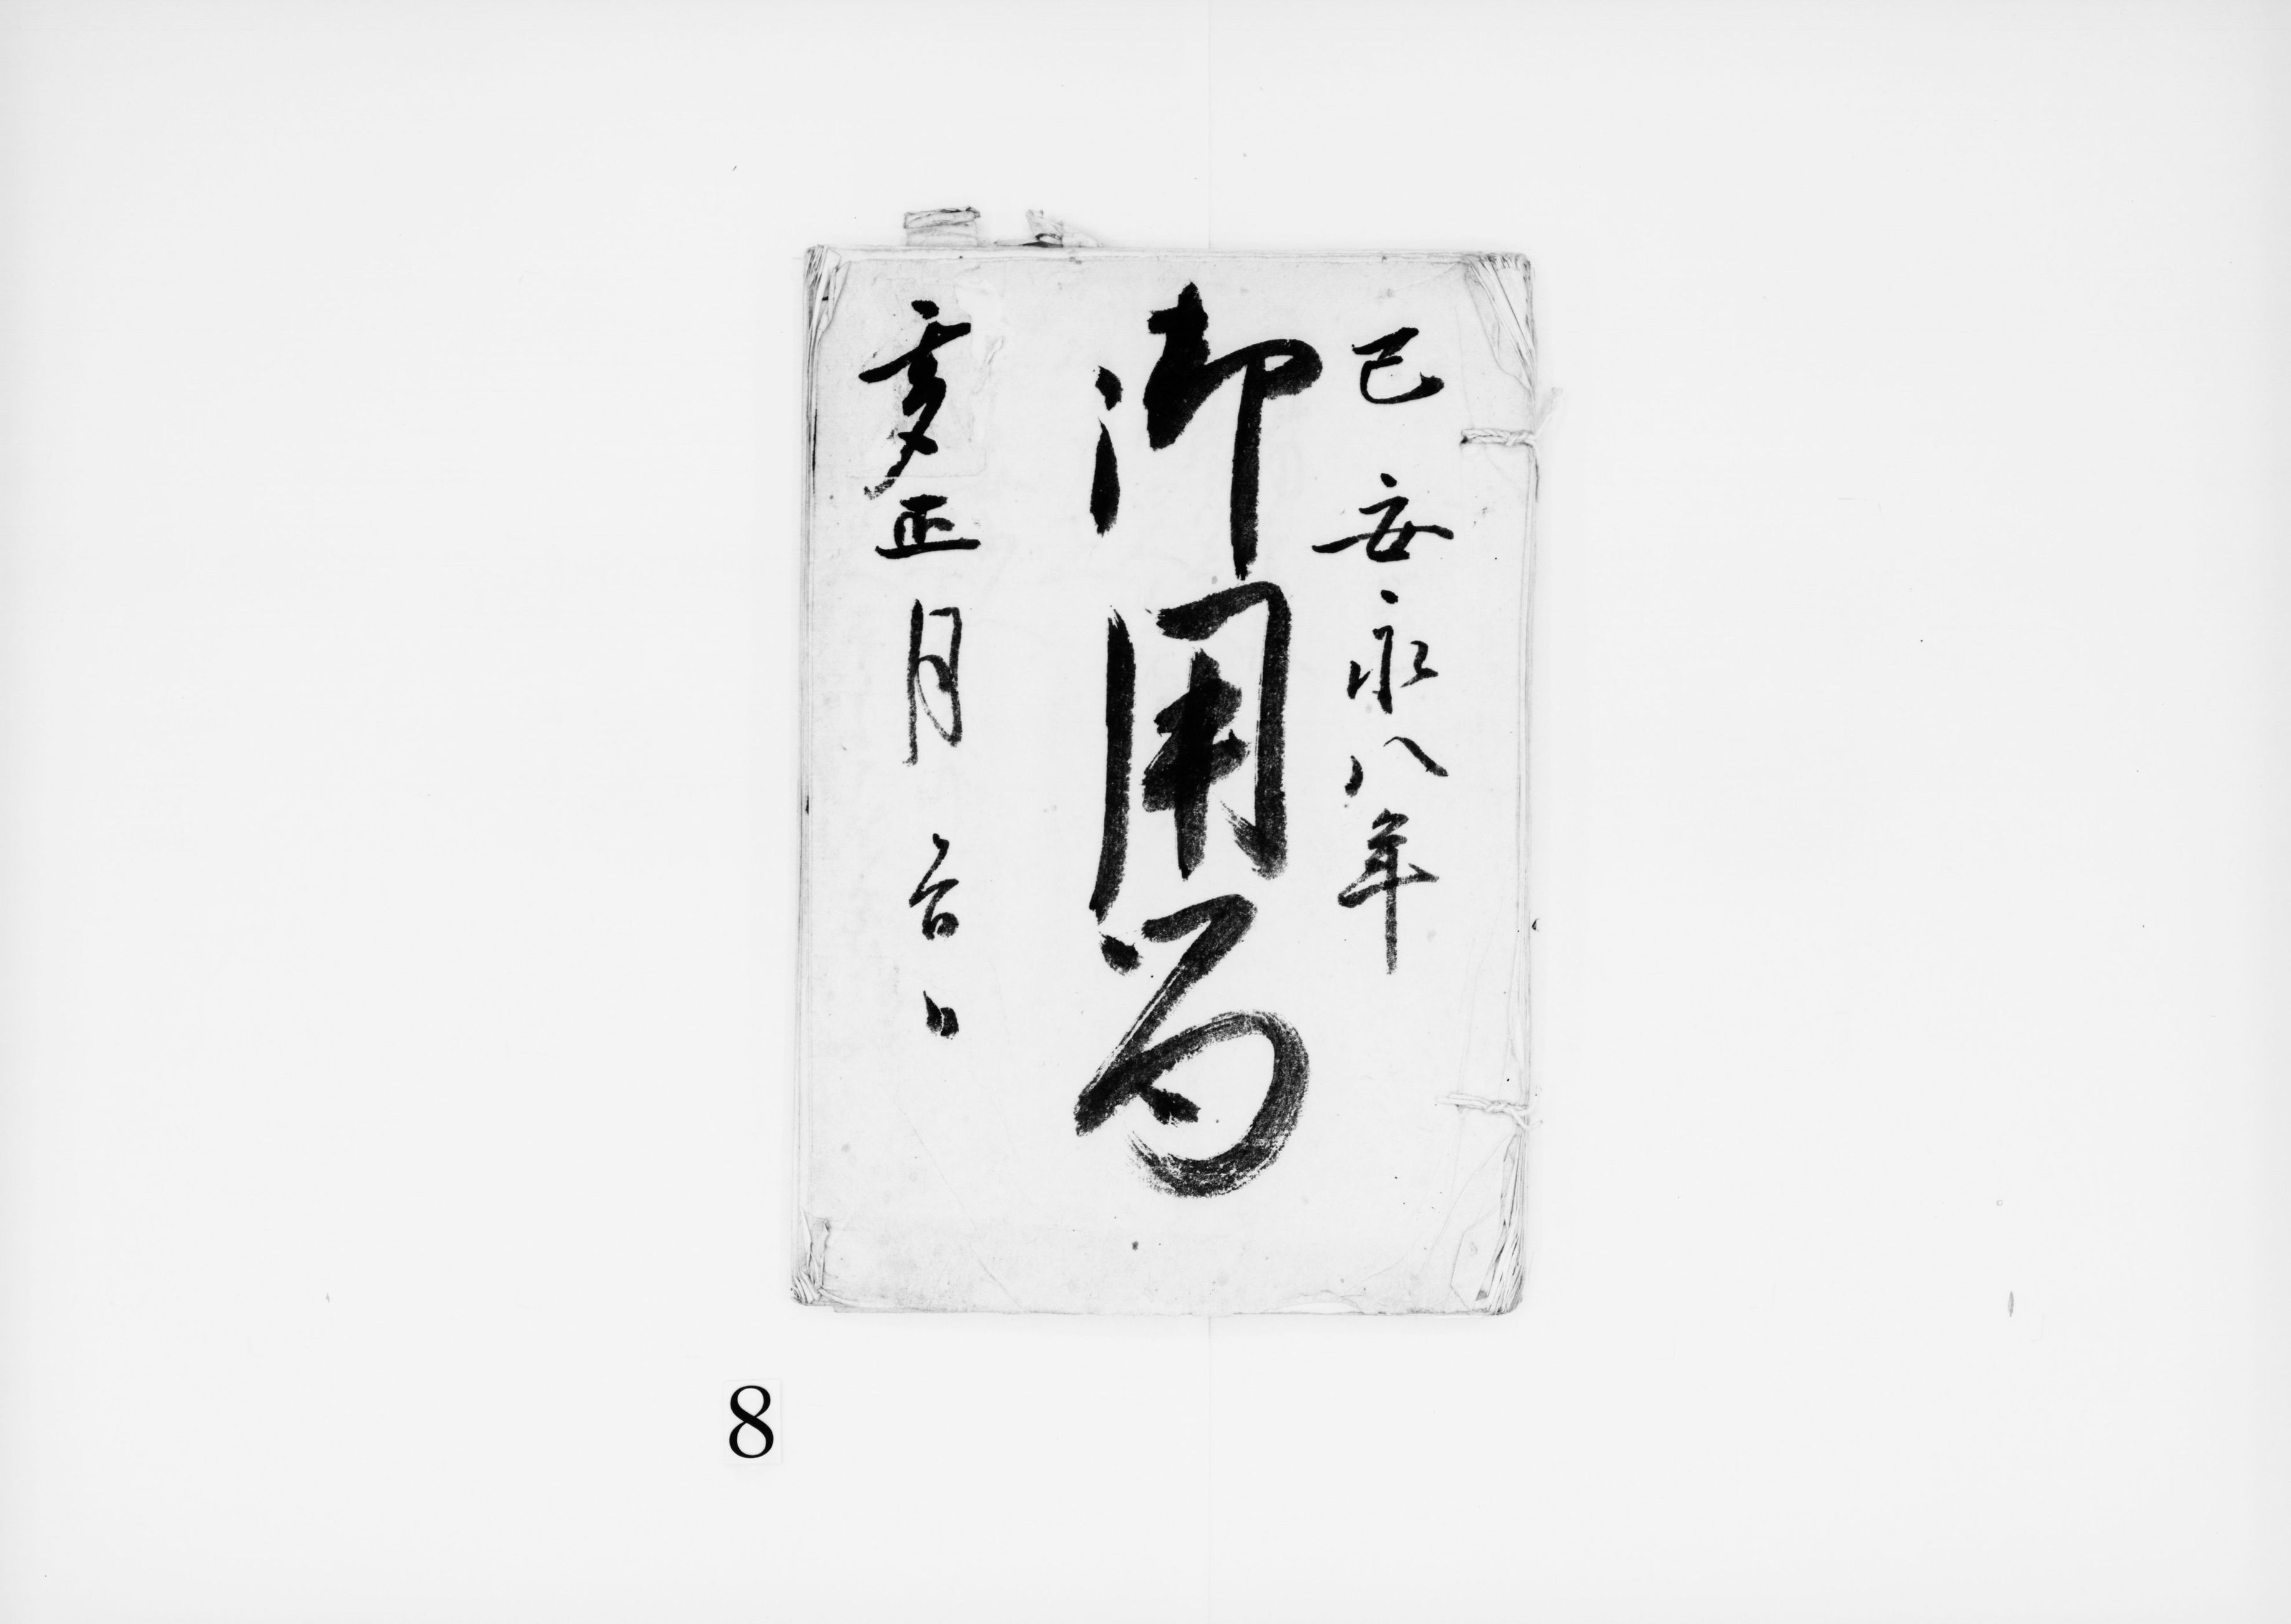 己安永八年
御用留
亥正月吉日
8